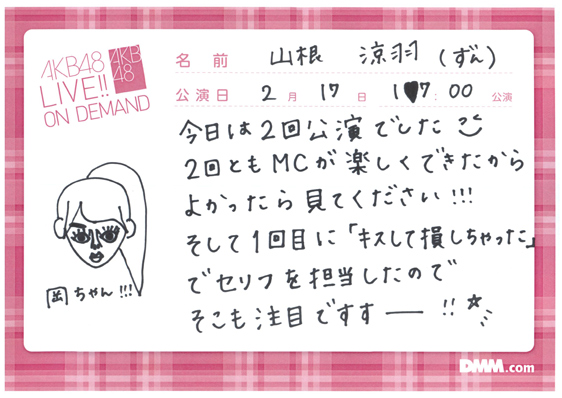 AKB48
LIVE!!
ON DEMAND
AKB
48
名前 山根 涼羽 (ずん)
公演日 2月 17日 17:00 公演
今日は2回公演でした
2回ともMCが楽しくできたから
よかったら見てください!!!
そして1回目に「キスして損しちゃった」
でセリフを担当したので
そこも注目ですすー!!
岡ちゃん!!!
DMM.com